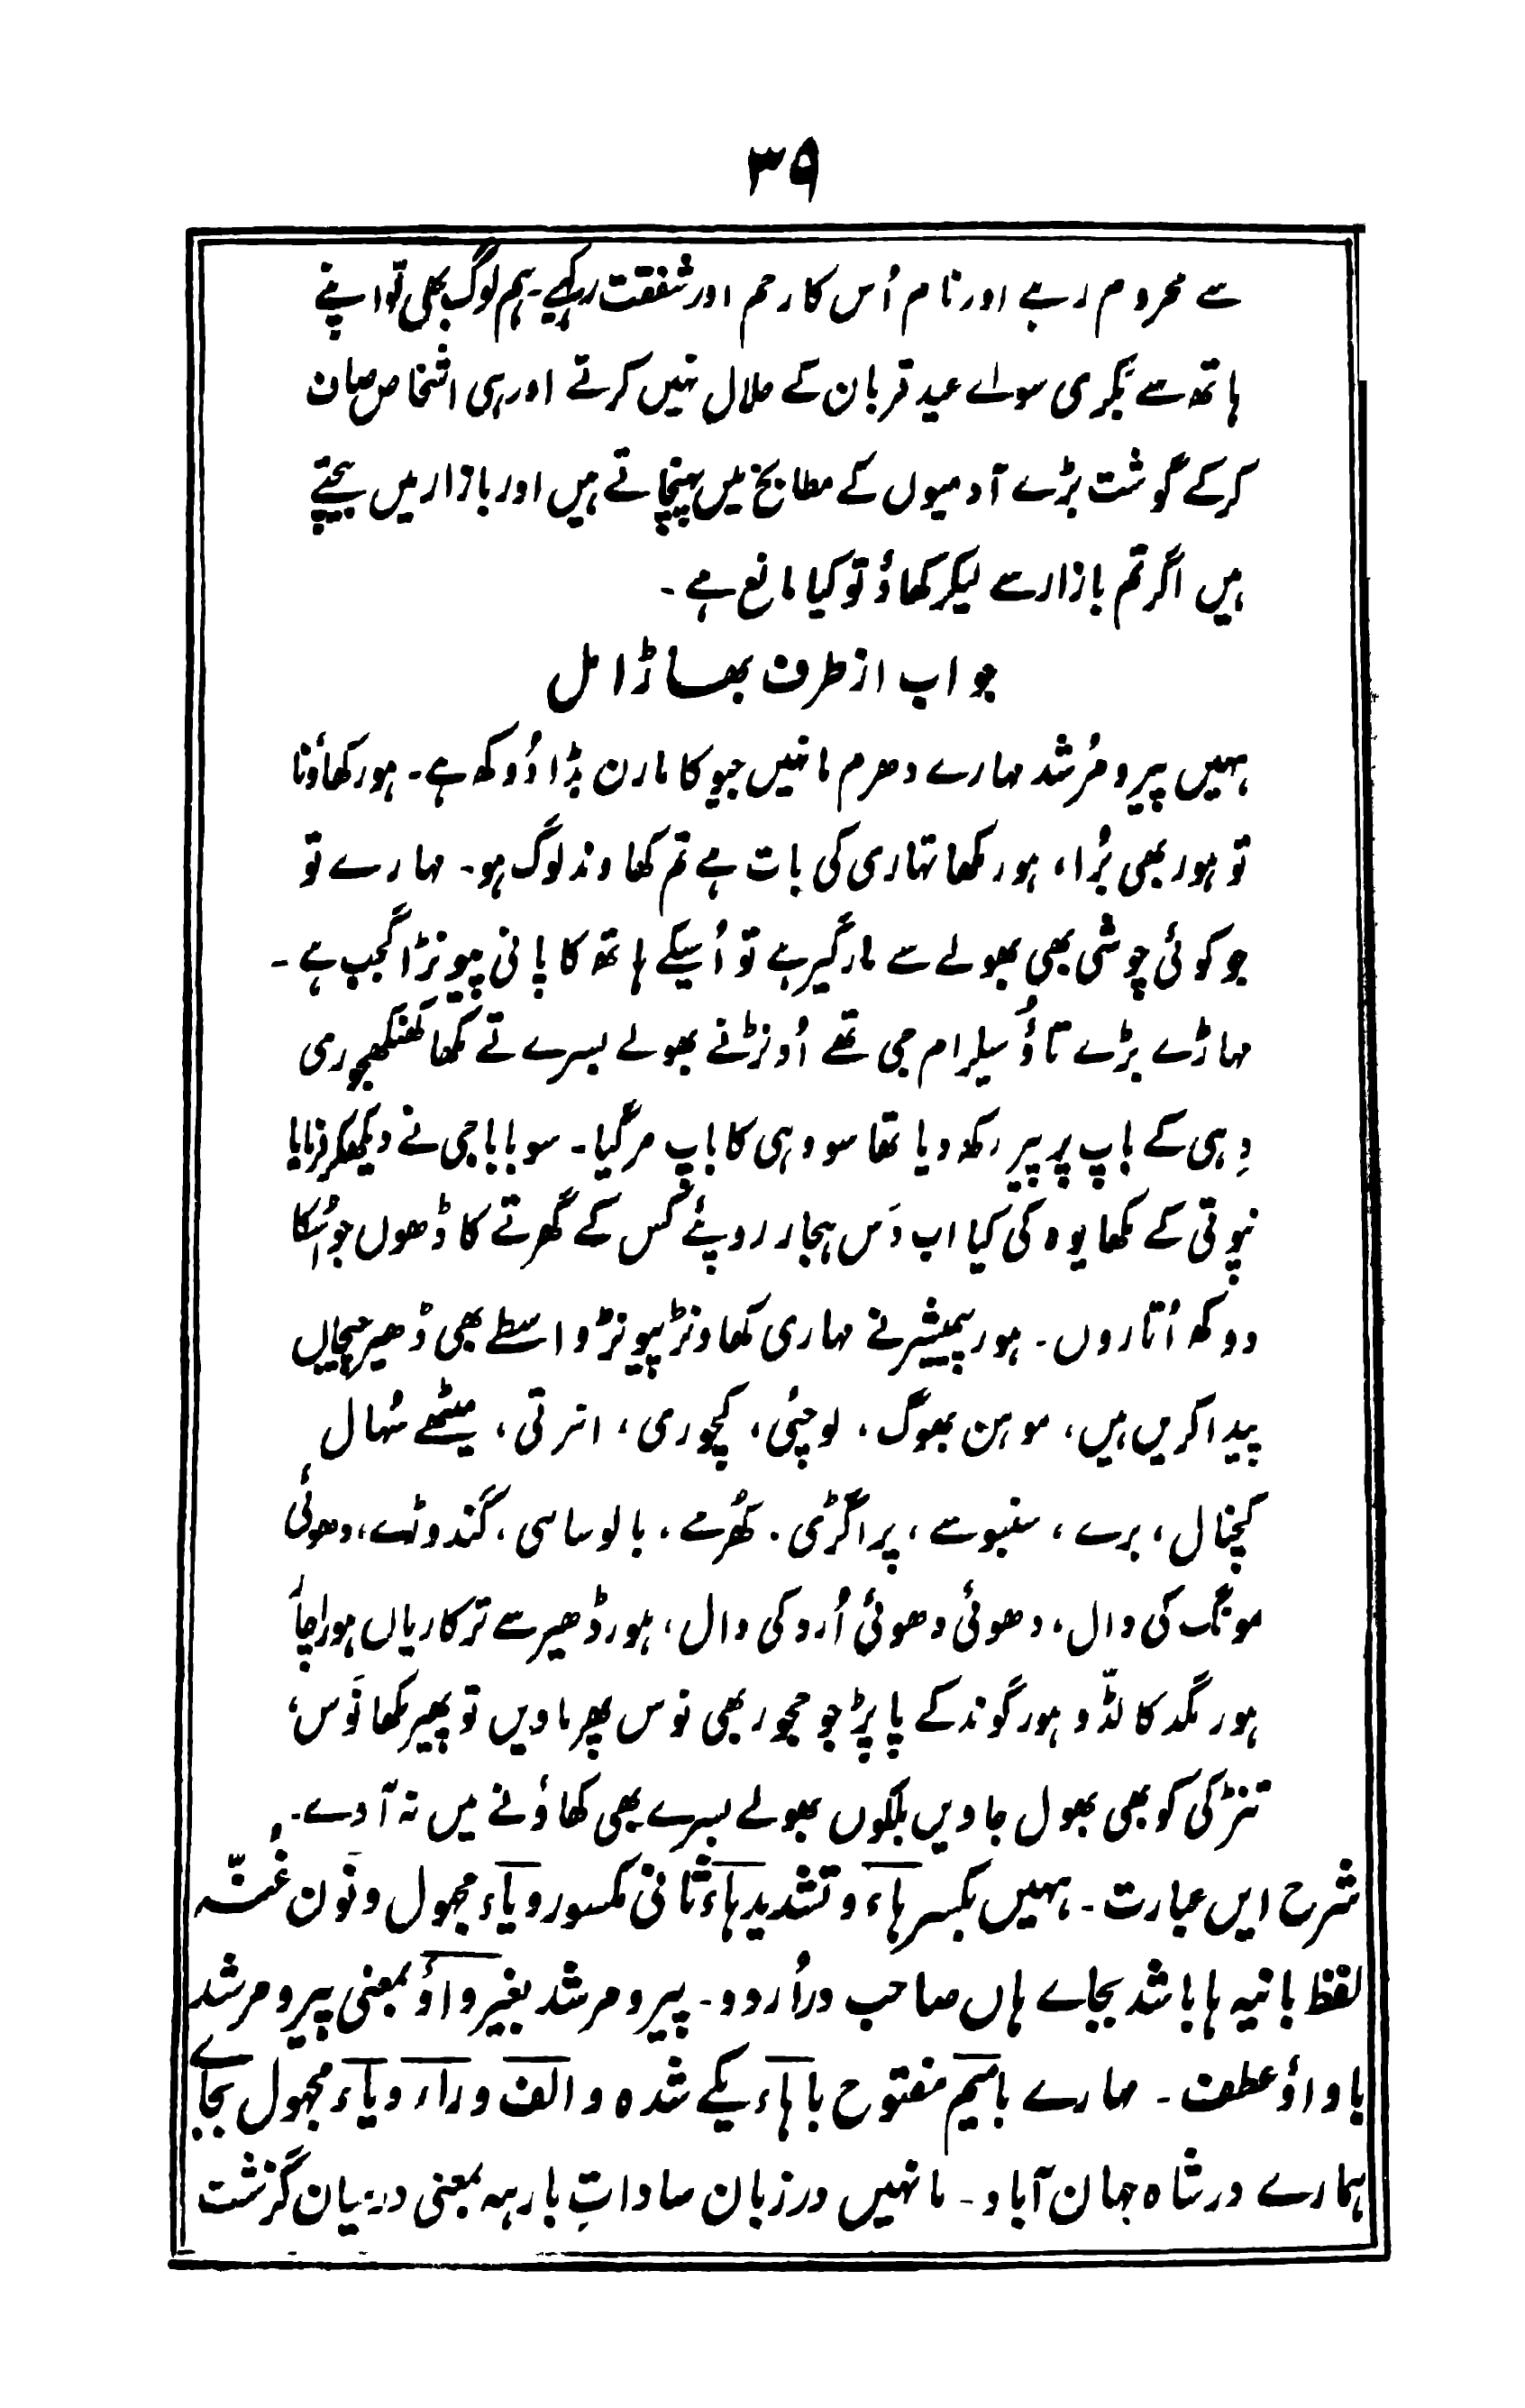 ۳۹
سے محروم رہے اور نام اُس کا رحم اور شفقت رکھیے۔ ہم لوگ بھی تو اپنے
ہاتھ سے بکری سواے عید قربان کے حلال نہیں کرتے اور ہی اشخاص صاف
کرکے گوشت بڑے آدمیوں کے مطابخ میں پہنچاتے ہیں اور بازار میں بیچتے
ہیں اگر تم بازار سے لیکر کھاؤ تو کیا مانع ہے ۔
جواب از طرف بھاڑا مل
ہہیں پیر و مُرشد مہارے دھرم مانہیں جیو کا مارن بڑا دُوکھ ہے ۔ ہور کھاؤنا
تو ہور بھی بُرا، ہور کھا تہاری کی بات ہے تم کھاوند لوگ ہو ۔ مہارے تو
جو کوئی چوشی بھی بھولے سے مار گیر ہے تو اُسیکے ہاتھ کا پانی پیونڑا گجب ہے ۔
مہاڑے بڑے تاؤ سیلرام جی تھے اُونڑنے بھولے بسرے تے کھا کھنکھجوری
وِہی کے باپ پر پیر رکھ دیا تھا سو وہی کا باپ مرگیا ۔ سو باباجی نے دیکھکر فرمایا
نپوتی کے کھا یوہ کی کیا اب دَس ہجار روپئے کس کے گھر تے کاڈھوں جو اُسکا
دوکھ اُتاروں ۔ ہور پمیشر نے مہاری کھاونڑ پیونڑ واسطے بھی ڈھیر چیجاں
پیدا کریں ہیں، موہن بھوگ، لوچئی، کچوری، انرتی، میٹھے سُہال
کچنال، برے، سنبوسے، پراگڑی، کھُرمے، بالوساسی، گندوڑے، دھوئی
مونگ کی دال، دھوئی دھوئی اُرد کی دال، ہور ڈھیر سے ترکاریاں ہور اچار
ہور مگد کا لڈّو ہور گوند کے پاپڑ جو حجور بھی نوس پھرماویں تو پھیر کھاؤَس،
تنڑکی کو بھی بھول جاویں بلکوں بھولے بسرے بھی کھاؤنے میں نہ آوے ۔
شرح ایں عبارت ۔ ہہیں بکسر ہاء و تشدید ہاء ثانی مکسور و یاء مجہول و نون غُنّہ
لفظ بانیہ ہا باشد بجاے ہاں صاحب در اُردو ۔ پیر و مرشد بغیر واؤ بمعنی پیر و مرشد
با واؤ عطف ۔ مہارے با میم مفتوح با ہاء یکے شدہ و الف و راء و یاء مجہول بجاے
ہمارے در شاہ جہان آباد ۔ مانہیں در زبان ساداتِ بارہہ بمعنی درمیان گزشت